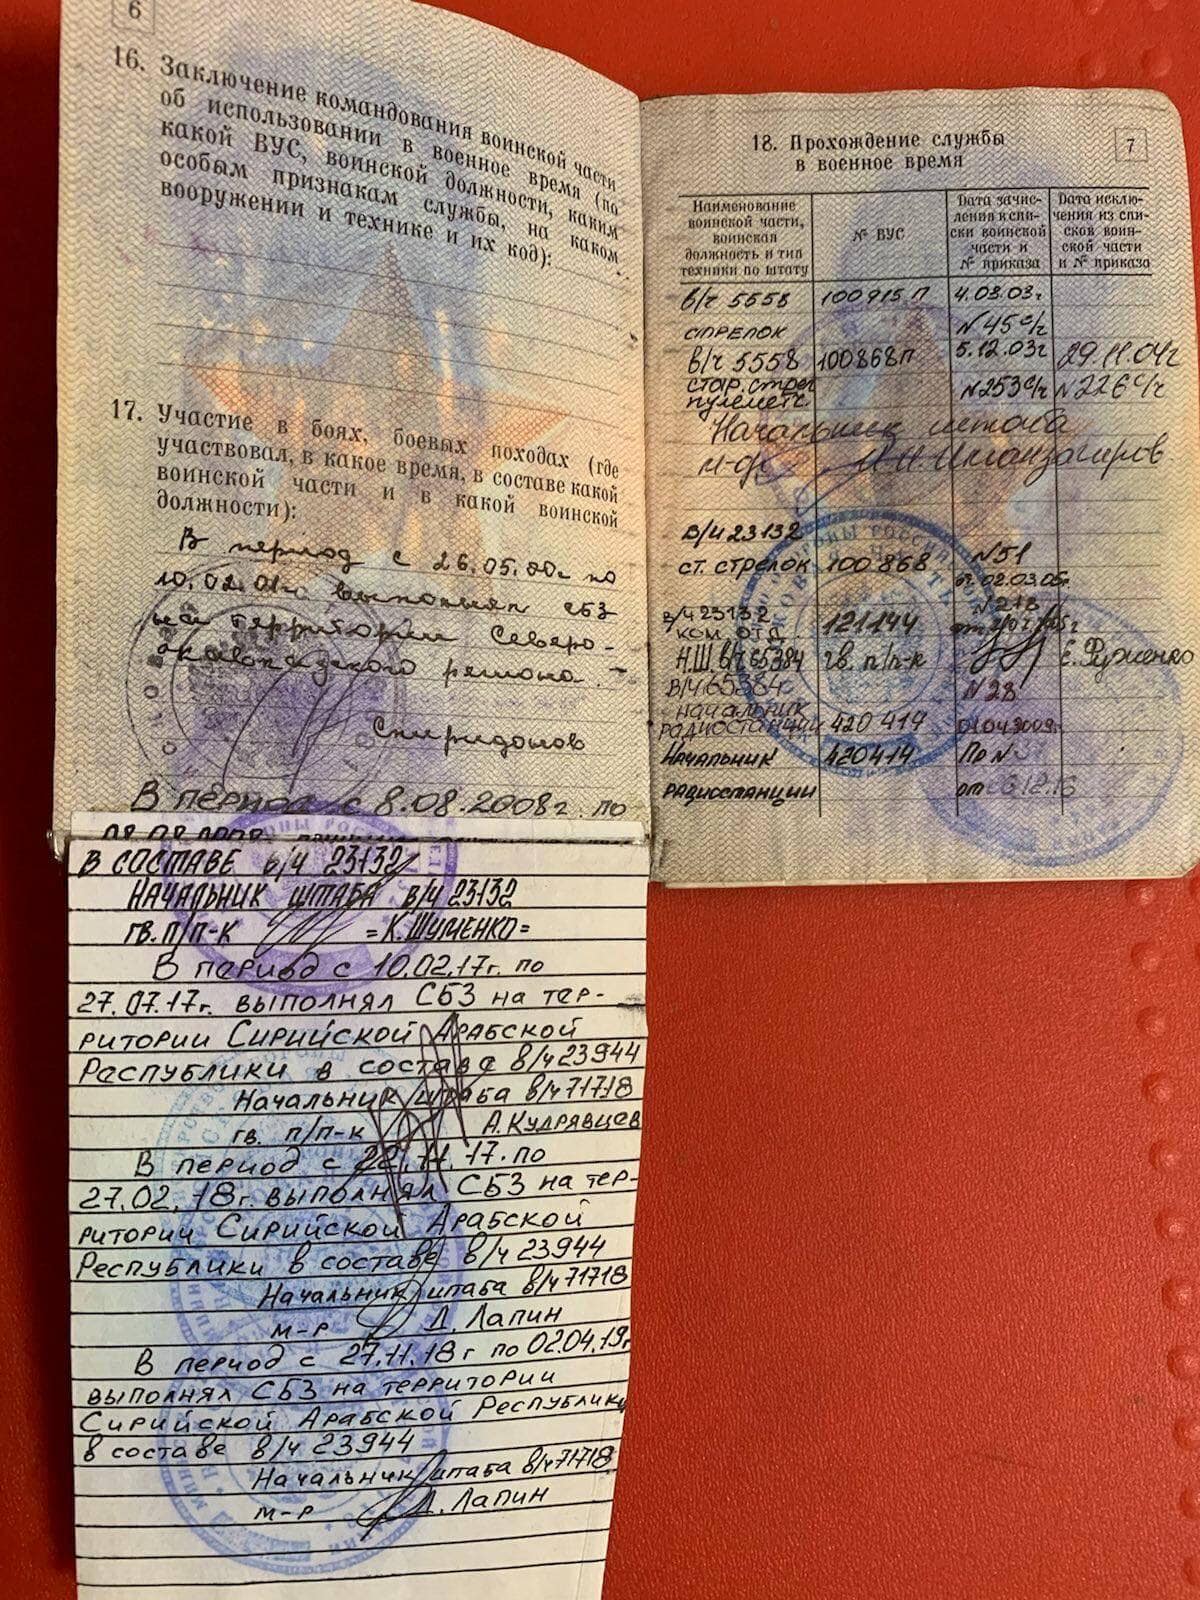 6
16. Заключение командования воинской части
об использовании в военное время (по
какой ВУС, воинской должности, каким
особым признакам службы, на каком
вооружении и технике и их код):
17. Участие в боях, боевых походах (где
участвовал, в какое время, в составе какой
воинской части и в какой воинской
должности):
В период с 26.05.00г по
10.02.01г выполнял СБЗ
территории Северо-
кавказского региона.
Спиридонов
В период с 8.08.2008г. по
В СОСТАВЕ В/Ч 23132
НАЧАЛЬНИК ШТАБА В/Ч 23132
ГВ. П/П-К =К.ШУМЕНКО=
В период с 10.02.17г. по
27.07.17г. выполнял СБЗ на тер-
ритории Сирийской Арабской
Республики в составе в/ч 23944
Начальник штаба в/ч 71718
гв. п/п-к А.Кудрявцев
В период с 22.11.17. по
27.02.18г. выполнял СБЗ на тер-
ритории Сирийской Арабской
Республики в составе в/ч 23944
Начальник штаба в/ч 71718
м-р Д. Лапин
В период с 27.11.18г по 02.04.19г
выполнял СБЗ на территории
Сирийской Арабской Республики
в составе в/ч 23944
Начальник штаба в/ч 71718
м-р Д. Лапин
7
18. Прохождение службы
в военное время
Наименование воинской части, воинская должность и тип техники по штату
№ ВУС
Дата зачисления в списки воинской части и № приказа
Дата исключения из списков воинской части и № приказа
в/ч 5558 100915 П 4.03.03г
стрелок №45с/ч
в/ч 5558 100868П 5.12.03г 29.11.04г
стар. стрел №253с/ч №226с/ч
пулеметч.
Начальник штаба
м-р
в/ч 23132 №51
ст. стрелок 100868 от 02.03.05г
в/ч 23132 №218
ком. отд. 121144
Н.Ш. в/ч 65384 гв. п/п-к
в/ч 65384 №28
начальник
радиостанции 420414
Начальник 420414 Пр №
радиостанции от